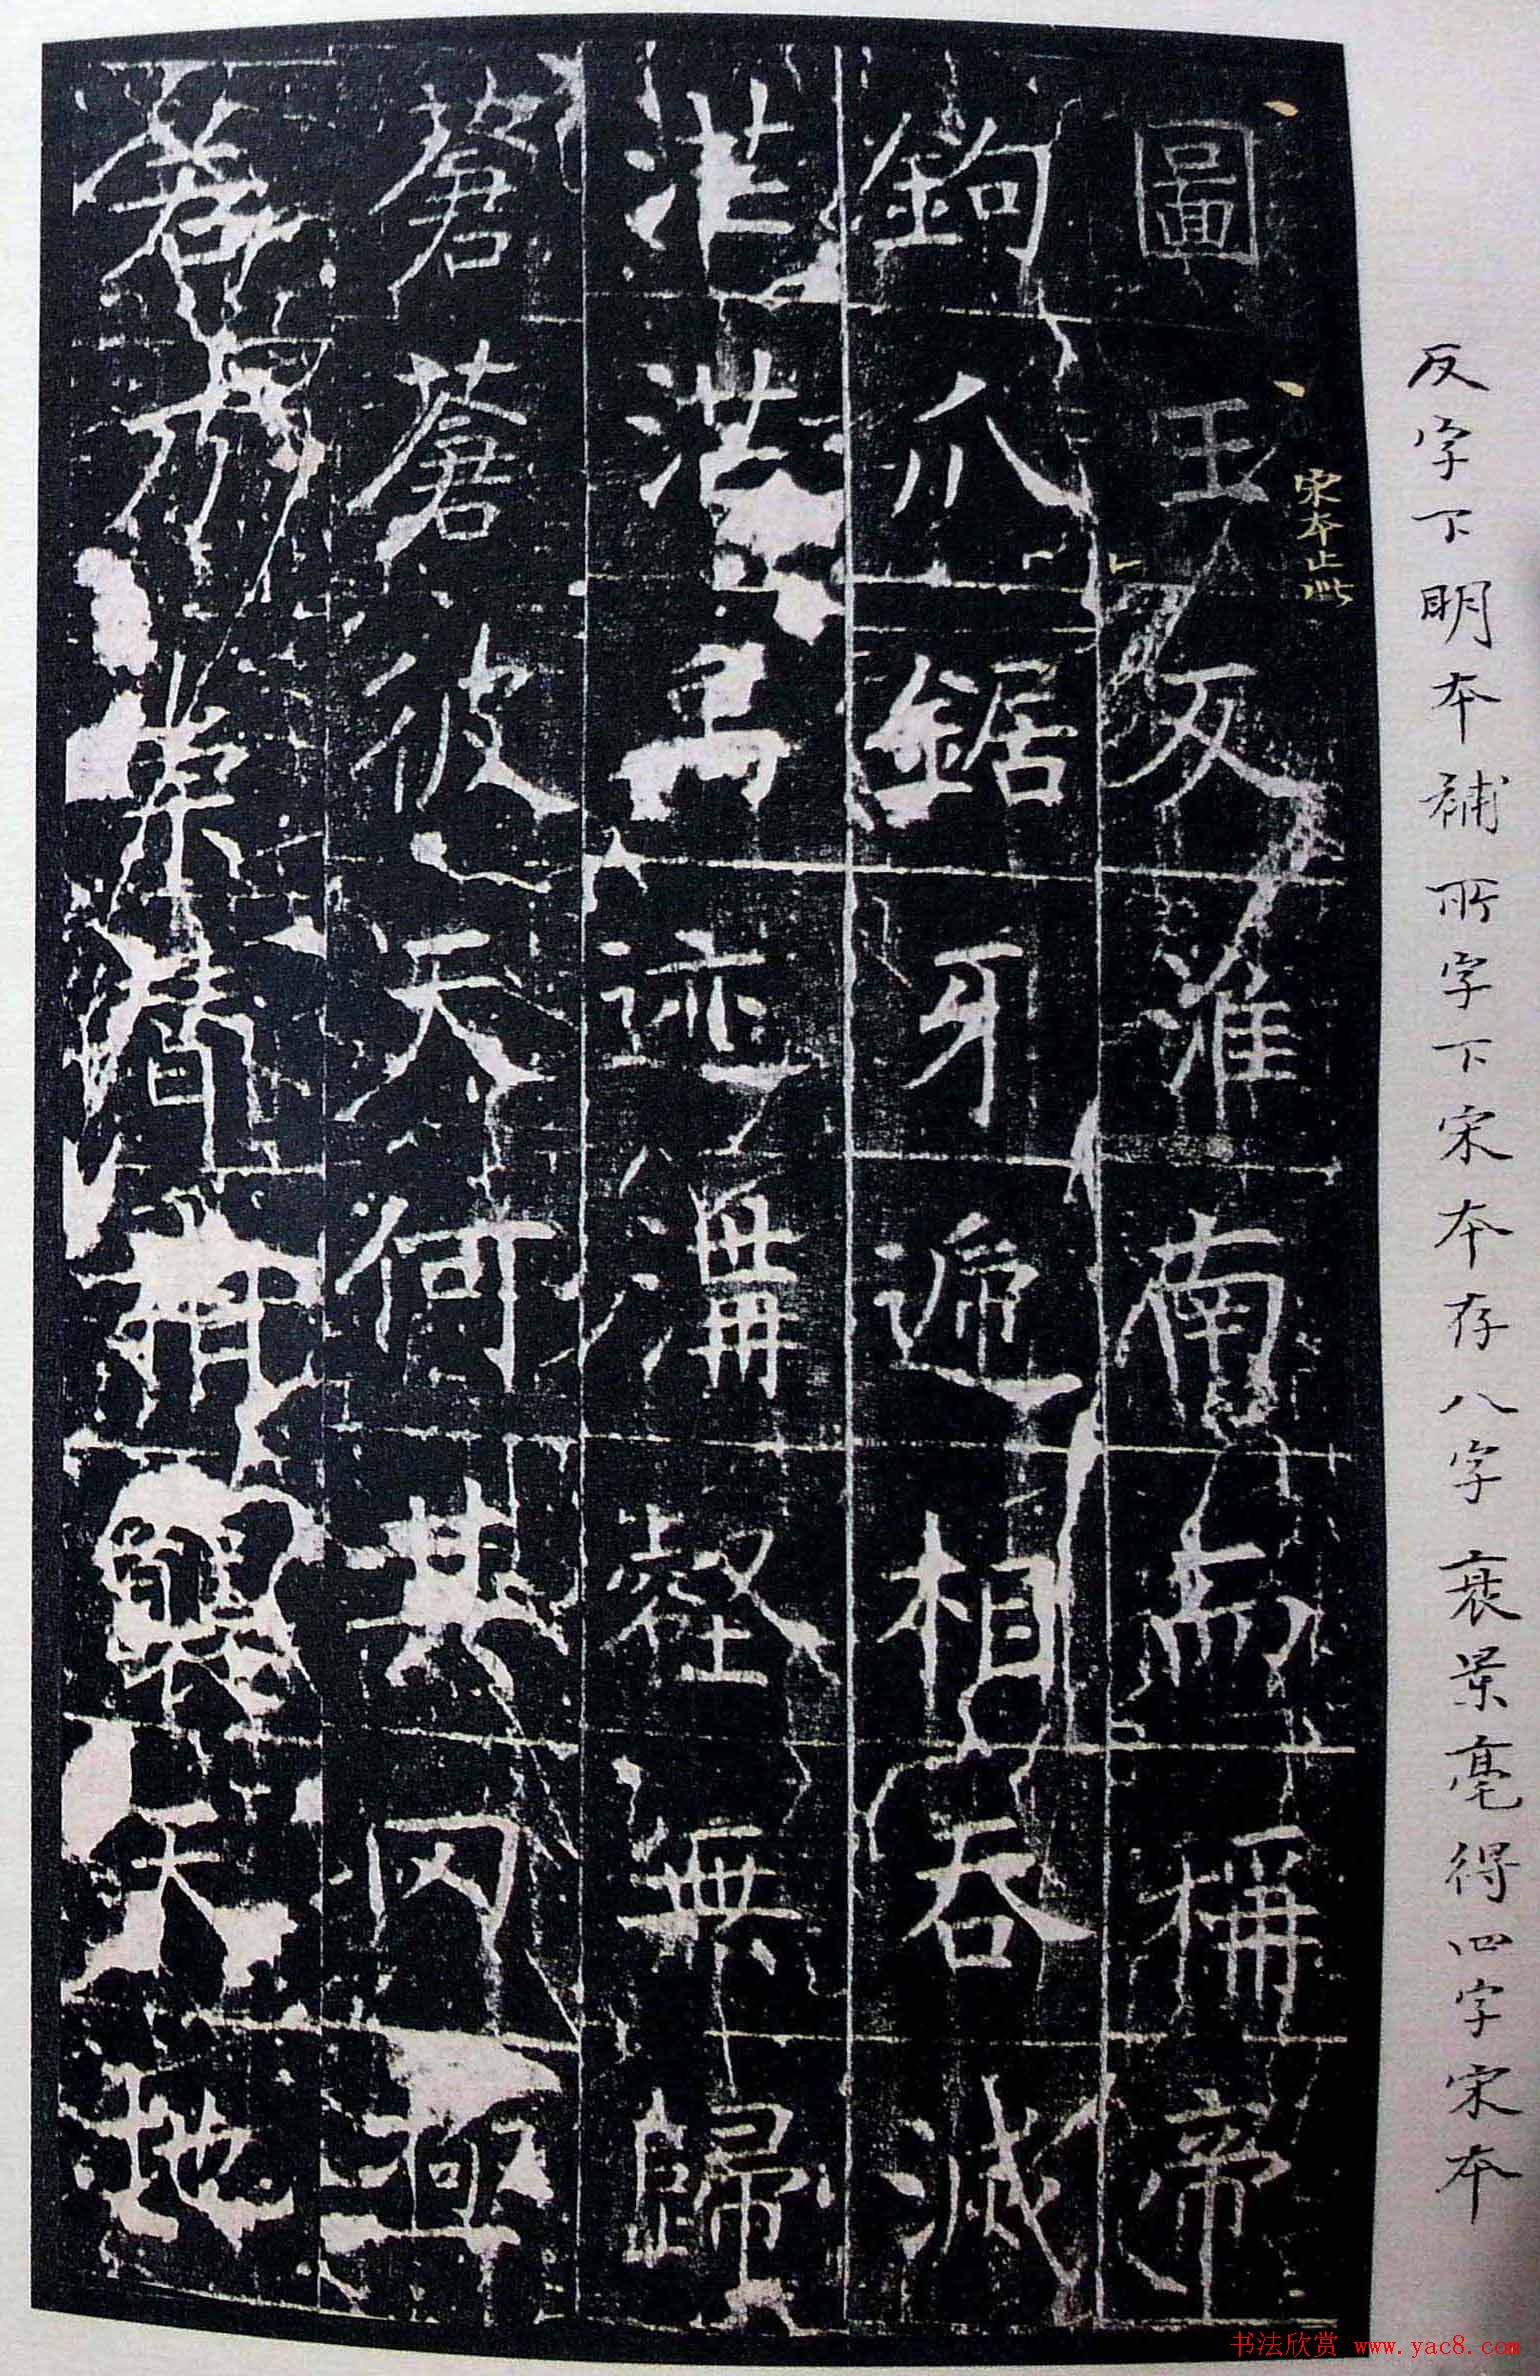 反字下明本補所字下宋本存八字衰景亳得四字宋本
宋本止此
圖王反淮南而稱帝
鉤爪鋸牙遞相吞滅
茫茫禹迹溝壑無歸
蒼蒼彼天何其罔極
若乃天地
书法欣赏 www.yac8.com